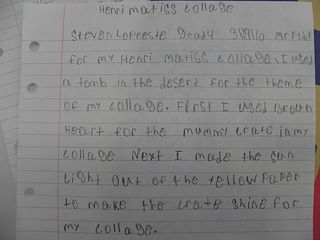 Henri matiss collage
Steven Lopreste Grady 9/19/10 Mr Flint
for my Henri matiss collage, I used
a tomb in the desert for the theme
of my collage. First I used Brown
Heart for the mummy crate in my
collage Next I made the sun
Light out of the Yellow Paper
to make the crate shine for
my collage.